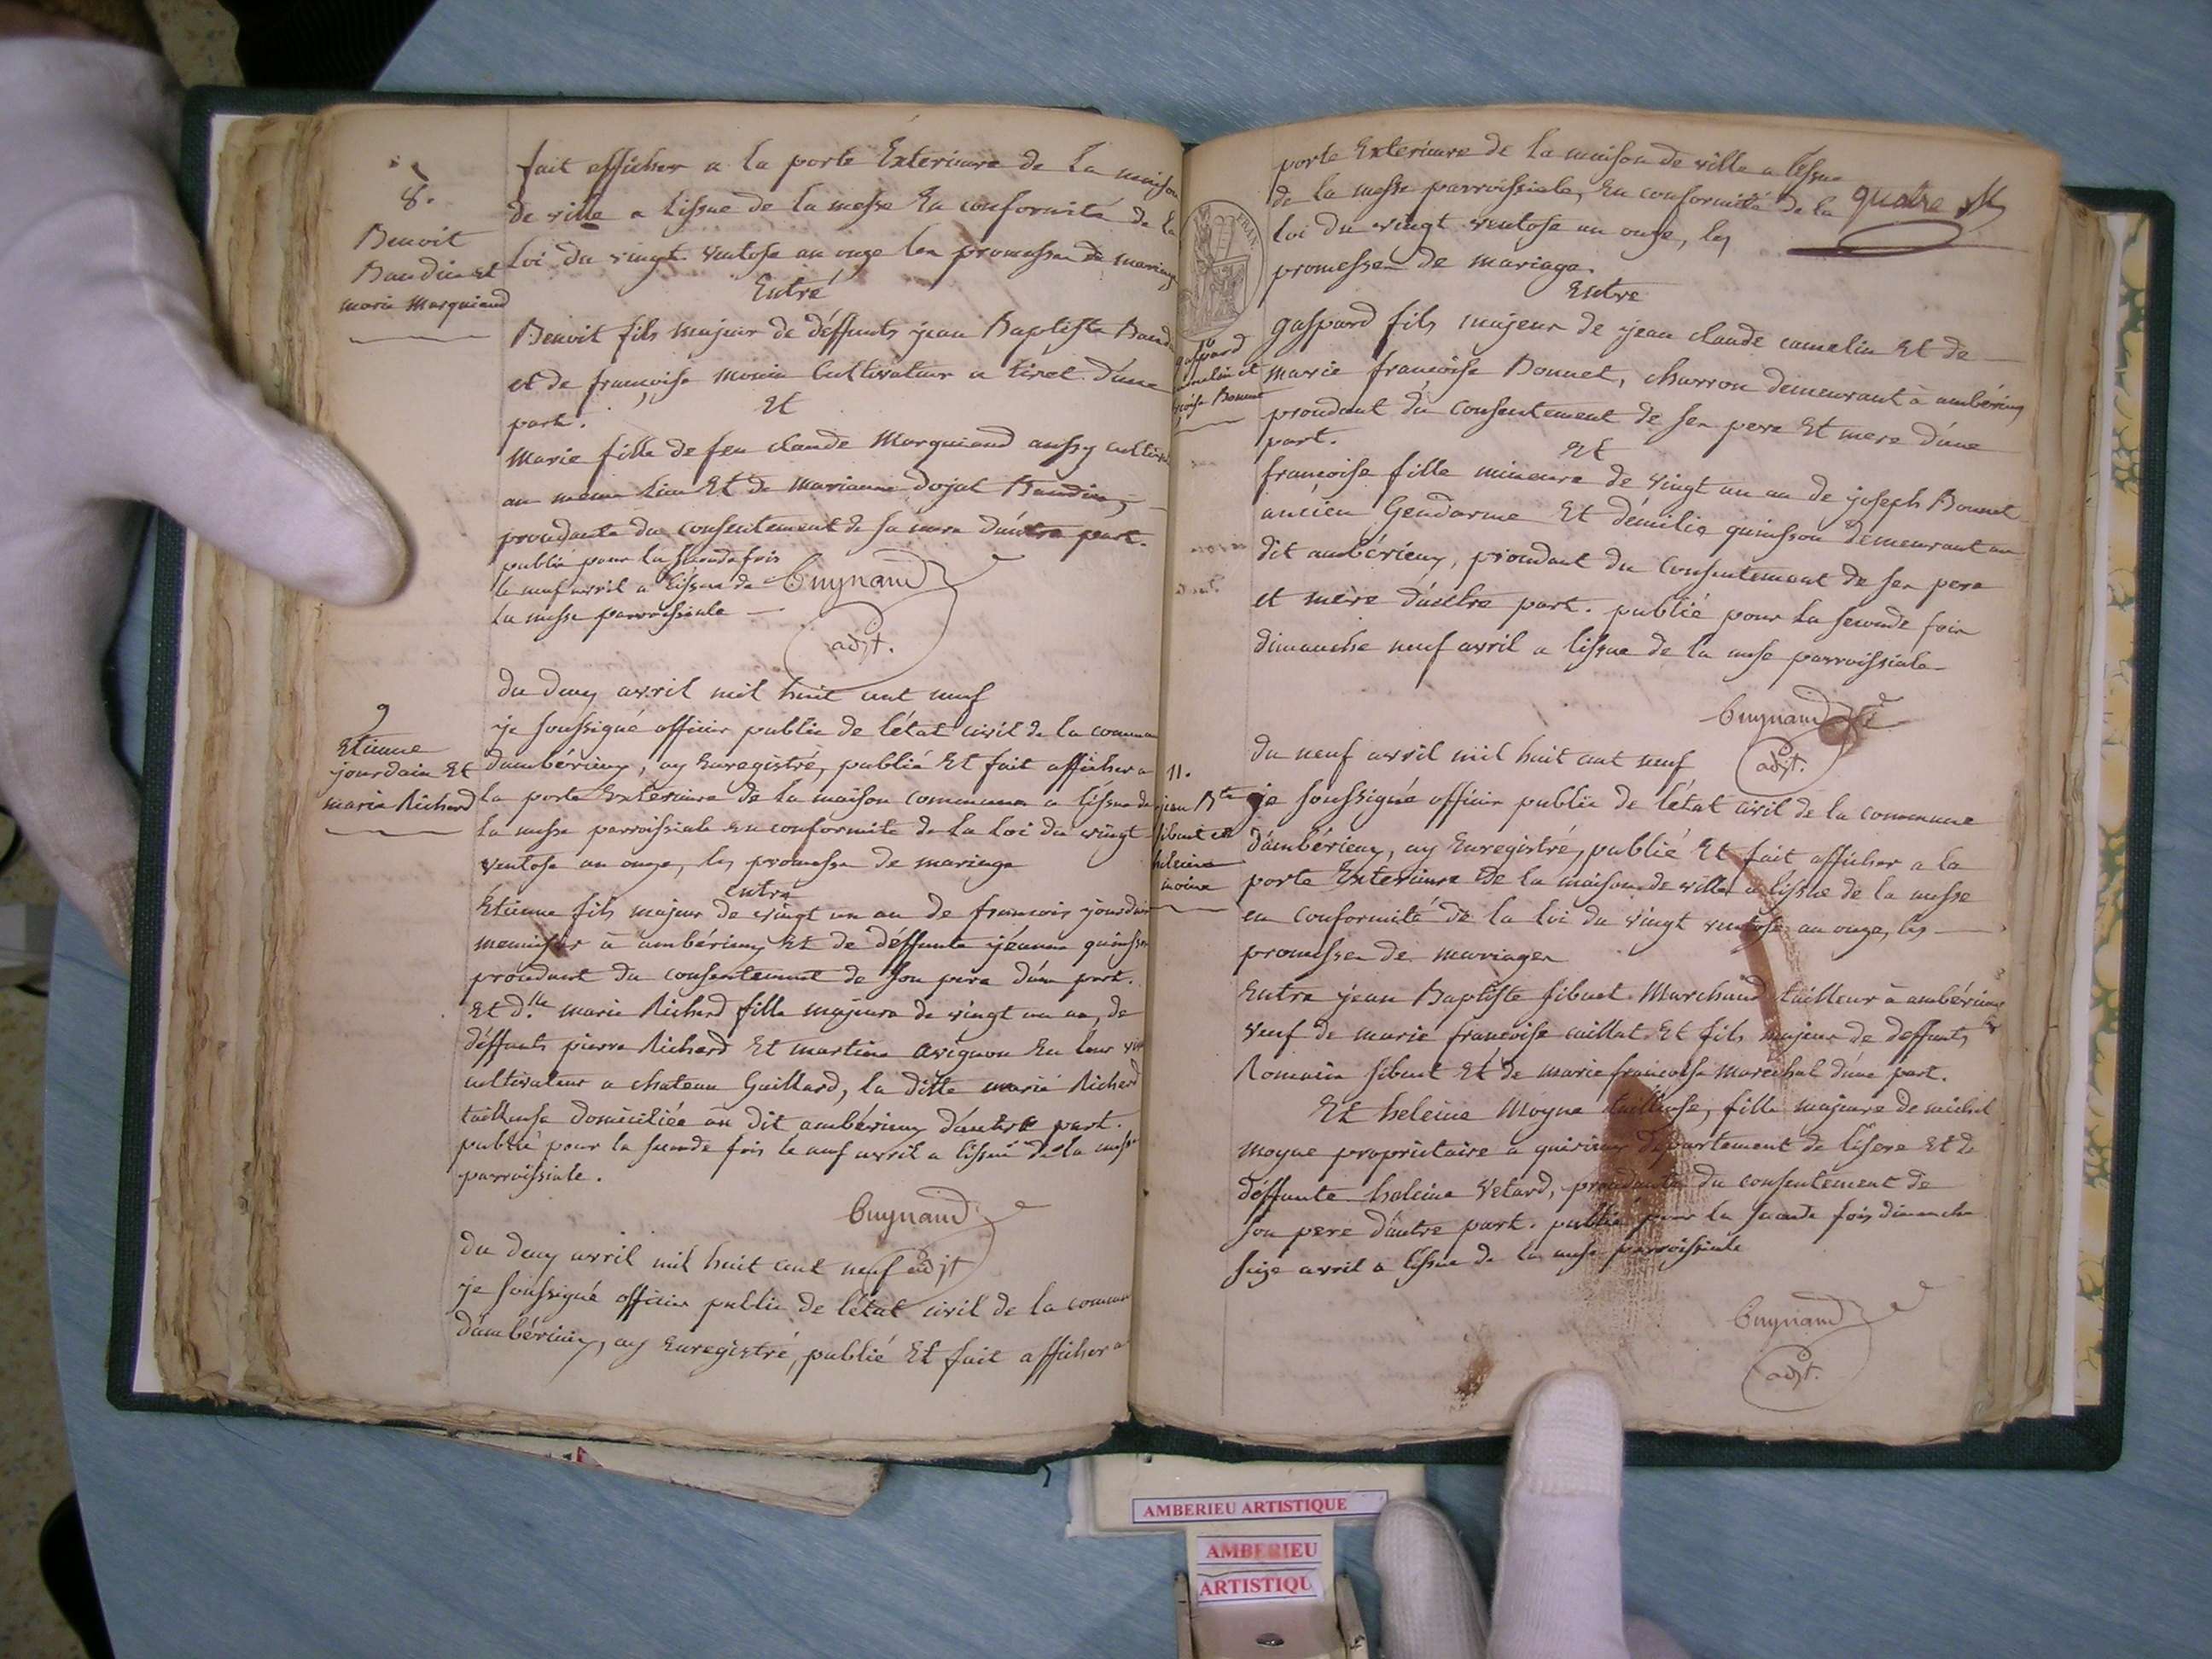 8.
Benoit
Baudin et
marie Marguiand
fait afficher a la porte Exterieure de la maison
de ville a lissue de la messe En conformité de la
loi du vingt ventose an onze les promesses de mariage
Entré
Benoit fils majeur de déffunts jean Baptiste Baud
et de françoise monin Cultivateur a tiret d'une
part.
Et
Marie fille de feu claude Marguiand aussy cultiv
au meme lieu Et de marianne dojat Baudin,
proudante du consentement de sa mere d'autre part.
publié pour la seconde fois
le neuf avril a lissue de
la messe parroissiale
Cuynand
adjt.
du deux avril mil huit cent neuf
9
Etienne
jourdain Et
marie Richard
je soussigné officier public de l'état civil de la commune
dambérieux, ay Enregistré, publié Et fait afficher a
la porte Exterieure de la maison commune a lissue de
la messe parroissiale en conformité de la loi du vingt
ventose an onze, les promesses de mariage
entre
Etienne fils majeur de vingt un an de francois jourdain
menuisier à ambérieux Et de déffunte jéanne quinson
proudant du consentement de son pere d'une part.
Et d.lle marie Richard fille majeure de vingt un an, de
déffunts pierre Richard Et martine avignon En leur viv
cultivateur a chateau Gaillard, la ditte marie Richard
tailleuse domiciliée au dit ambérieux d'autre part.
publié pour la seconde fois le neuf avril a lissue de la messe
parroissiale.
Cuynand
adjt
du deux avril mil huit cent neuf
je soussigné officier public de l'état civil de la commune
d'ambérieux, ay Enregistré, publié Et fait afficher a
porte Exterieure de la maison de ville a lissue
de la messe parroissiale, En conformité de la
loi du vingt ventose an onze, les
promesses de mariage.
quatre
FRAN
Entre
gaspard
camelin et
Bonnet
gaspard fils majeur de jean claude camelin Et de
marie françoise Bonnet, charron demeurant à ambérieux
proudant du consentement de ses pere Et mere d'une
part.
Et
francoise fille mineure de vingt un an de joseph Bonnet
ancien Gendarme Et d'émilie quinson demeurant au
dit ambérieux, proudant du consentement de ses pere
et mere d'autre part. publié pour la seconde fois
dimanche neuf avril a lissue de la messe parroissiale
Cuynand
adjt.
du neuf avril mil huit cent neuf
11.
jean Bte
sibuet et
heleine
moine
je soussigné officier public de l'état civil de la commune
d'ambérieux, ay Enregistré, publié Et fait afficher a la
porte Exterieure de la maison de ville a lissue de la messe
en conformité de la loi du vingt ventose an onze, les
promesses de mariages
Entre jean Baptiste sibuet Marchand tailleur à ambérieux
veuf de marie francoise caillat Et fils majeur de deffunts
Romain sibuet Et de marie francoise Marechal d'une part.
Et heleine Moyne tailleuse, fille majeure de michel
moyne proprietaire a quirieux département de lisere Et de
déffunte heleine Vetard, proudante du consentement de
son pere d'autre part. publié pour la seconde fois dimanche
seize avril a lissue de la messe parroissiale
Cuynand
adjt.
AMBERIEU ARTISTIQUE
AMBERIEU
ARTISTIQU